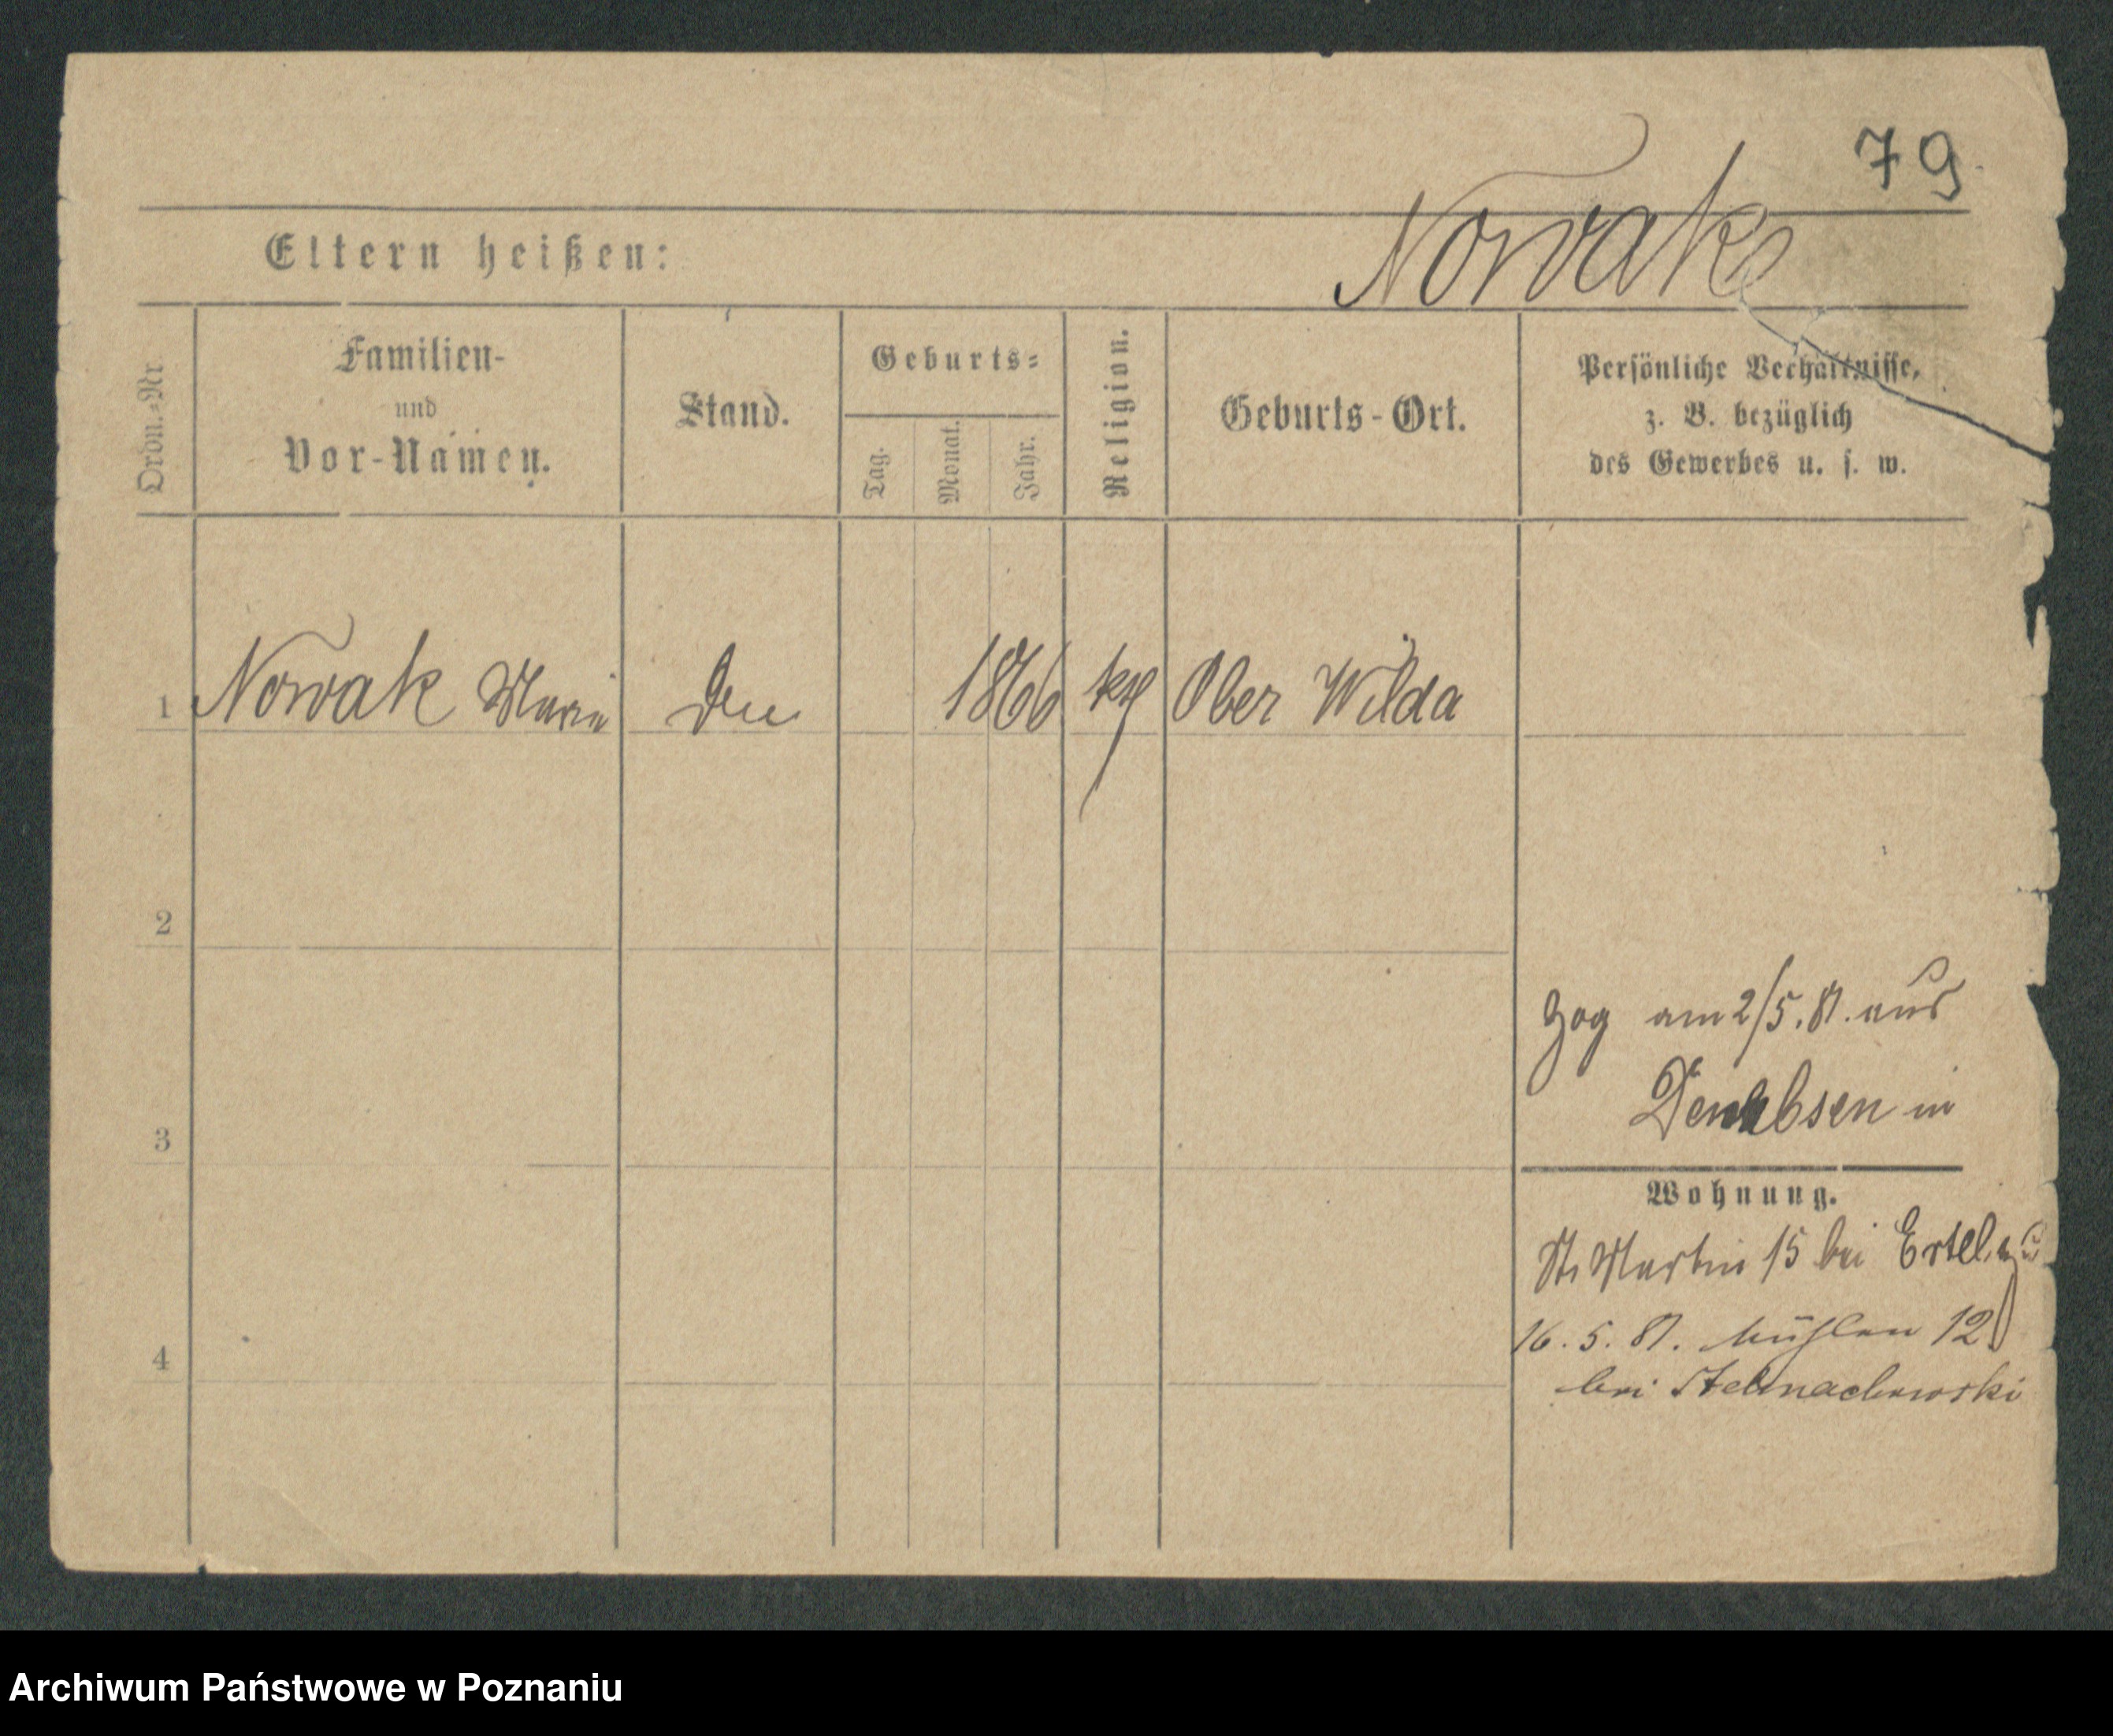 79
Nowak
Eltern heißen:
Ordn.-Nr.
Familien-
und
Vor-Namen.
Stand.
Geburts-
Tag.
Monat.
Jahr.
Religion.
Geburts-Ort.
Persönliche Verhältnisse,
z. B. bezüglich
des Gewerbes u. s. w.
1 Nowak Marie 1866 kth Ober Wilda
2
zog am 2/5. 81. aus
Dembsen in
3
Wohnung.
St. Martin 15 bei Ertel
16. 5. 81. Mühlen 12
4
bei Stelmachowski
Archiwum Państwowe w Poznaniu